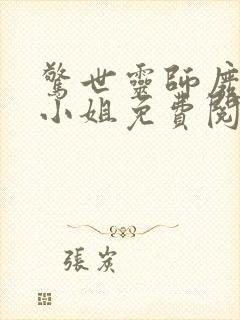 驚世靈師廢
小姐免費閱
張炭